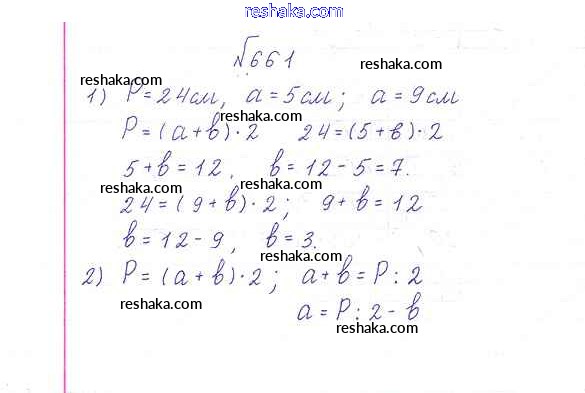 reshaka.com
№661
reshaka.com
reshaka.com
1) P=24см, a=5см; a=9см
P=(a+b)·2 24=(5+b)·2
5+b=12, b=12-5=7.
reshaka.com
reshaka.com
24=(9+b)·2; 9+b=12
b=12-9, b=3.
reshaka.com
2) P=(a+b)·2; a+b=P:2
reshaka.com
a=P:2-b
reshaka.com